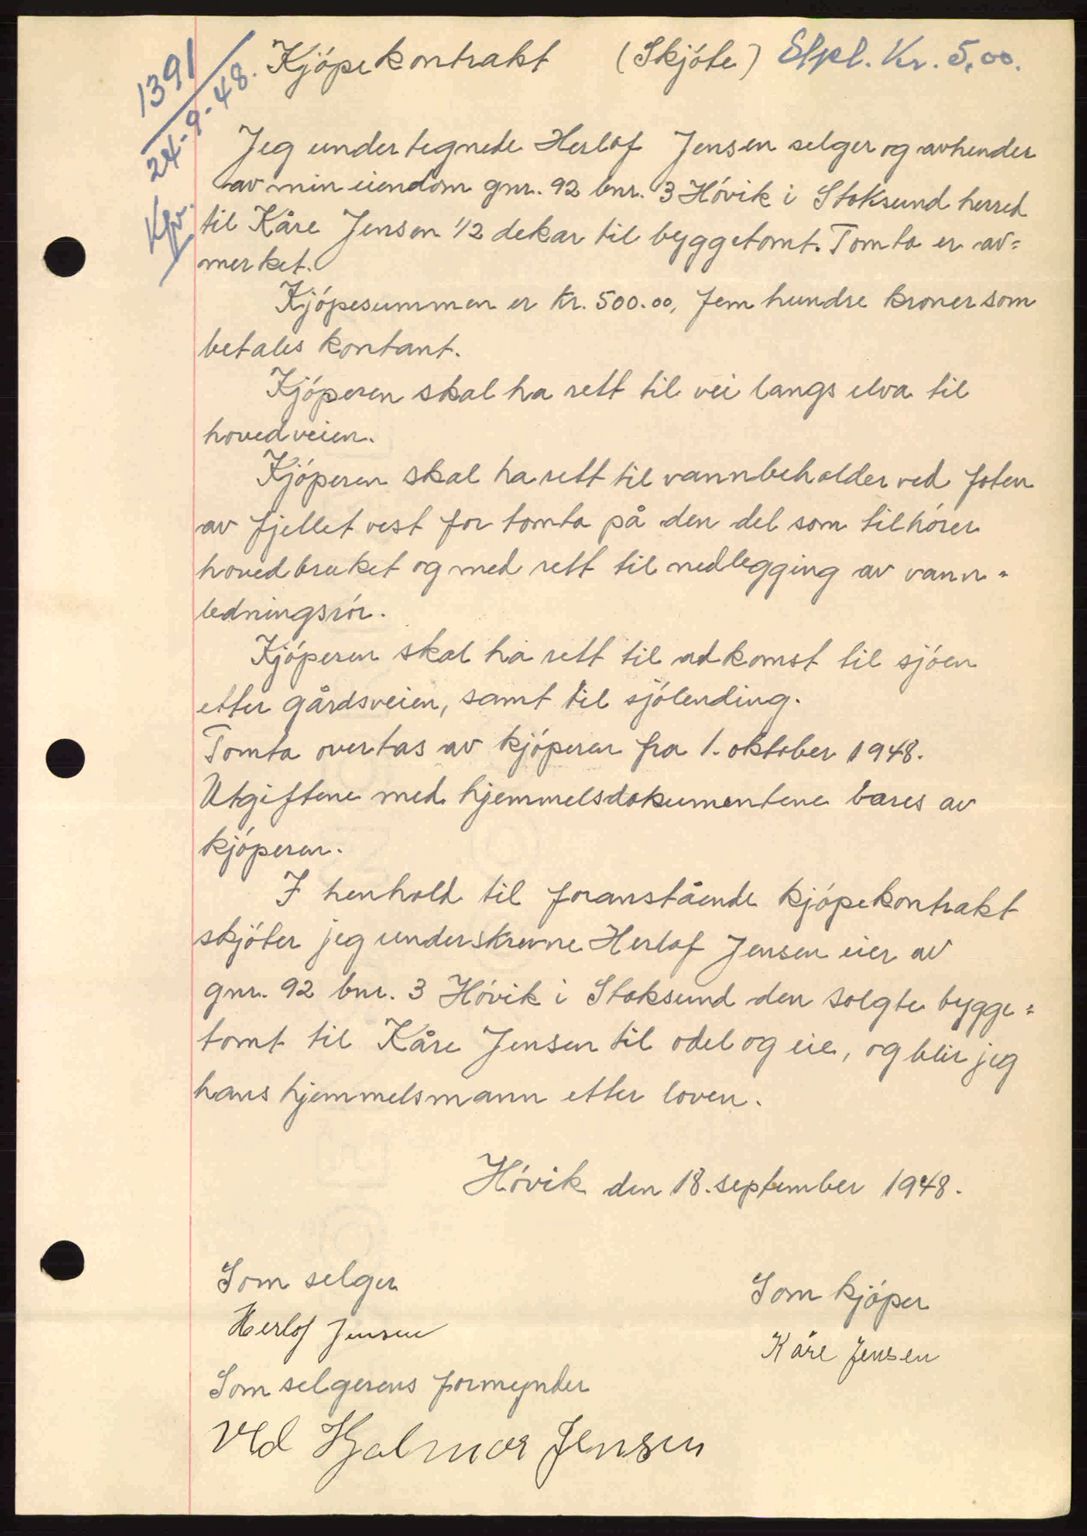 1391
24-9-48.
Kjøpekontrakt (Skjøte) Stpl. Kr. 5,00.
Jeg undertegnede Herlof Jensen selger og avhender
av min eiendom gnr. 92 bnr. 3 Høvik i Stoksund herred
til Kåre Jensen 1/2 dekar til byggetomt. Tomta er av=
merket.
Kjøpesummen er Kr. 500.00, fem hundre kroner som
betales kontant.
Kjøperen skal ha rett til vei langs elva til
hovedveien.
Kjøperen skal ha rett til vannbeholder ved foten
av fjellet vest for tomta på den del som tilhører
hovedbruket og med rett til nedlegging av vann=
ledningsrør.
Kjøperen skal ha rett til adkomst til sjøen
etter gårdsveien, samt til sjølending.
Tomta overtas av kjøperen fra 1. oktober 1948.
Utgiftene med hjemmelsdokumentene bæres av
kjøperen.
I henhold til foranstående kjøpekontrakt
skjøter jeg underskrevne Herlof Jensen eier av
gnr. 92 bnr. 3 Høvik i Stoksund den solgte bygge=
tomt til Kåre Jensen til odel og eie, og blir jeg
hans hjemmelsmann etter loven.
Høvik den 18. september 1948.
Som selger
Herlof Jensen
Som kjøper
Kåre Jensen
Som selgerens formynder
Hjalmar Jensen